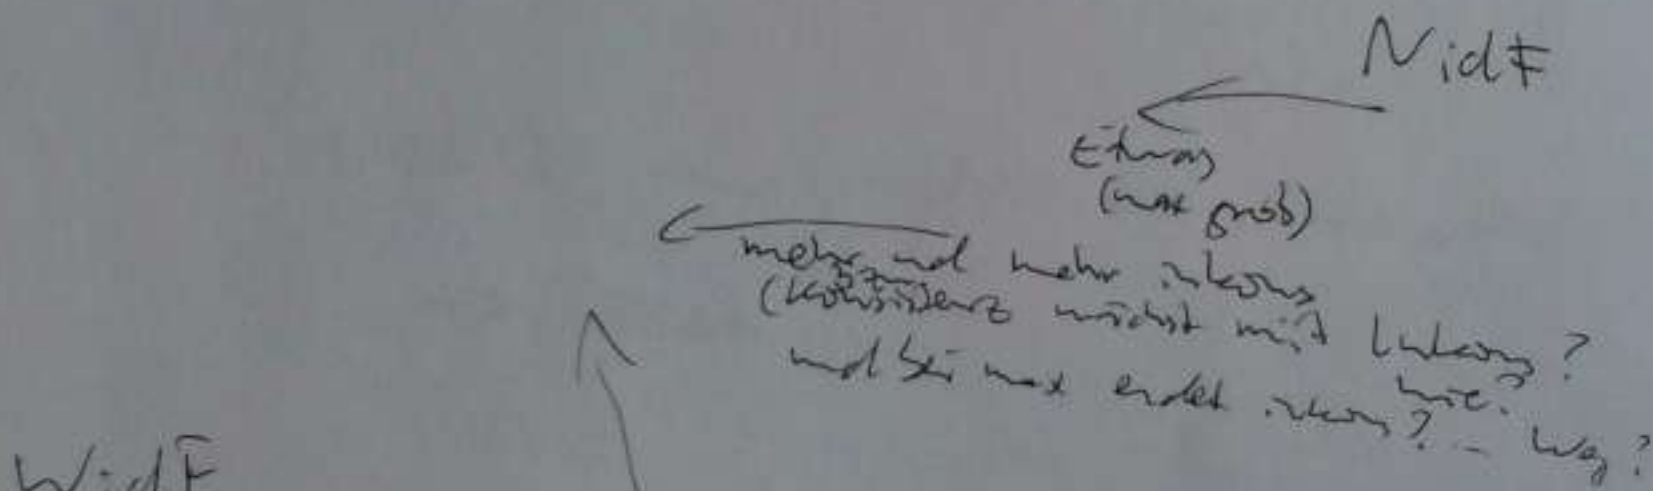 NidF
Etwas
(max grob)
mehr und mehr inkons
(Konsistenz wächst mit Inkons?
wie?
und bei max endet inkons? - Weg?
WidF